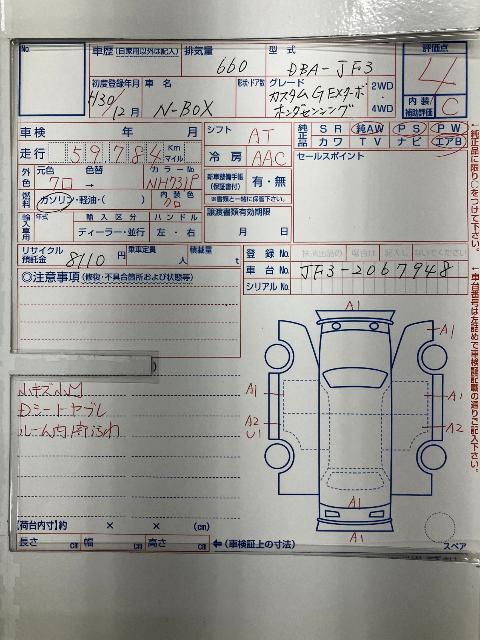 No.
車歴 (自家用以外は記入)
排気量 660
型式 DBA-JF3
評価点 4
初度登録年月 H30/12月
車名 N-BOX
形状・ドア数
グレード カスタムGEXターボ ホンダセンシング
2WD
4WD
内装/補助評価 C
車検 年 月
シフト AT
純正品 SR 純AW PS PW
カワ TV ナビ エアB
走行 59,784 Km マイル
冷房 AAC
セールスポイント
外色 元色 クロ 色替 → カラーNo. NH731P
新車整備手帳(保証書付) 有・無
※書類と一緒に保管下さい。
燃料 ガソリン・軽油・( ) 内装色 クロ
輸入車用 年式 輸入区分 ハンドル
ディーラー・並行 左・右
譲渡書類有効期限
月 日
リサイクル預託金 8110円
乗車定員 人
積載量 t
登録No.
車台No. JF3-2067948
シリアルNo.
◎注意事項 (修復・不具合箇所および状態等)
小キズ小凹
Dシートヤブレ
ルーム内汚れ
A1
A1
A1
A1
A2
U1
A2
A1
A1
【荷台内寸】約 × × (cm)
長さ cm 幅 cm 高さ cm ←(車検証上の寸法)
スペア
↑純正品に限り○をつけて下さい。
↑車台番号は左詰めで車検証記載の通りご記入下さい。